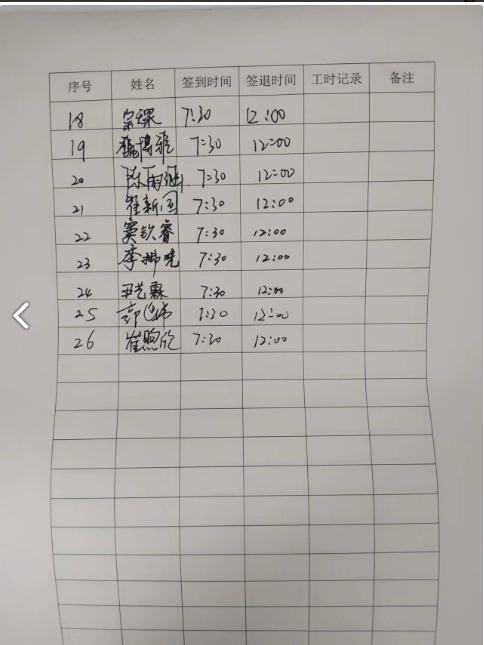 序号 姓名 签到时间 签退时间 工时记录 备注
18 7:30 12:00
19 7:30 12:00
20 7:30 12:00
21 崔新国 7:30 12:00
22 窦钦睿 7:30 12:00
23 7:30 12:00
24 尹艺霖 7:30 12:00
25 7:30 12:00
26 崔煦欣 7:30 12:00